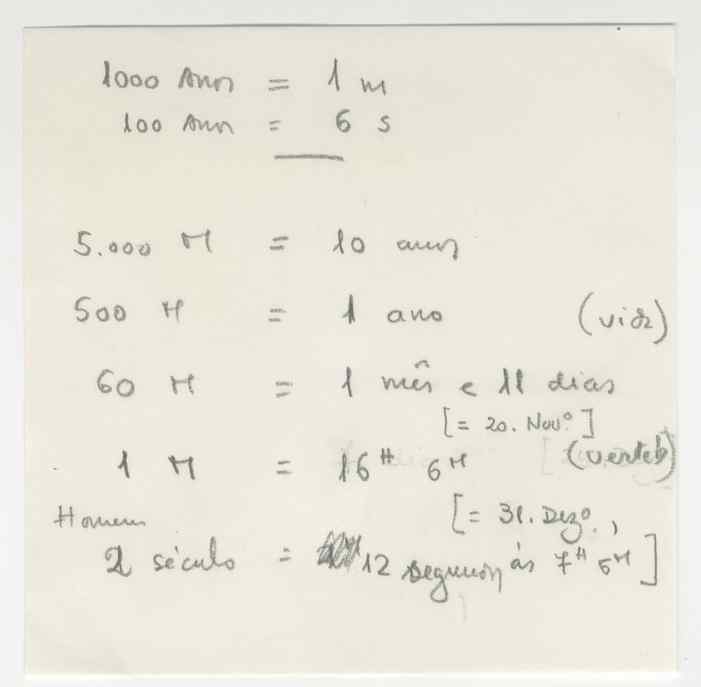 1000 Anos = 1 m
100 Anos = 6 s
5.000 M = 10 anos
500 M = 1 ano (vida)
60 M = 1 mês e 11 dias
[= 20. Novº]
1 M = 16H 6M (verteb)
Homem [= 31. Dezº.,
2 século = 12 segundos às 7H 6M]